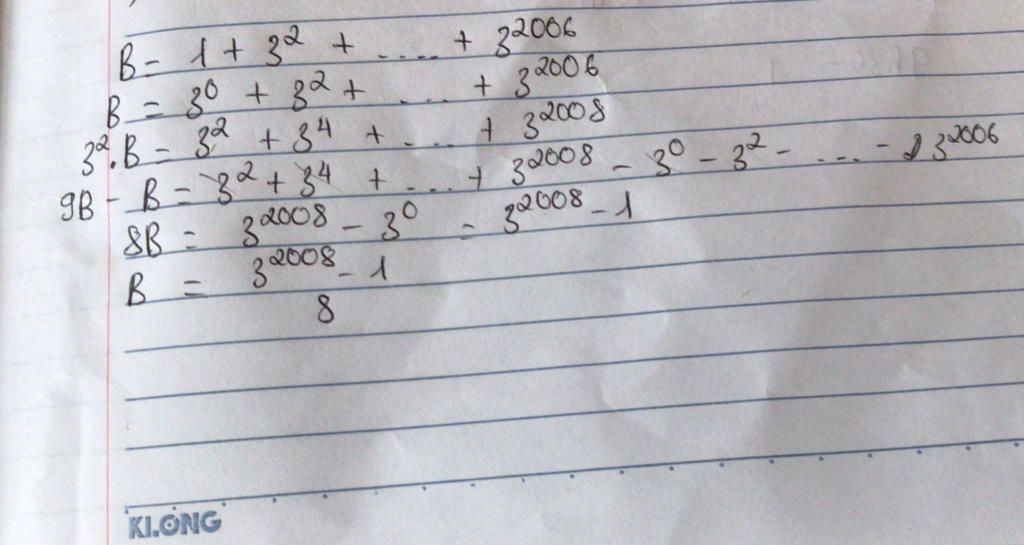 B = 1 + 3² + .... + 3²⁰⁰⁶
B = 3⁰ + 3² + .... + 3²⁰⁰⁶
3².B = 3² + 3⁴ + .... + 3²⁰⁰⁸
9B - B = 3² + 3⁴ + .... + 3²⁰⁰⁸ - 3⁰ - 3² - .... - 3²⁰⁰⁶
8B = 3²⁰⁰⁸ - 3⁰ = 3²⁰⁰⁸ - 1
B = 3²⁰⁰⁸ - 1
8
KLONG